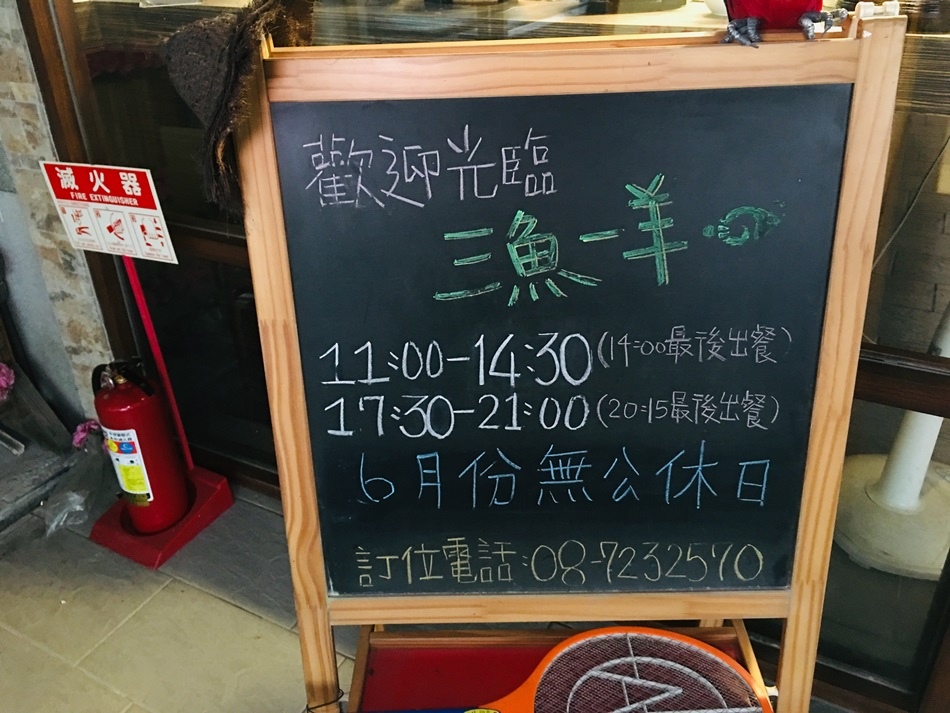 歡迎光臨
三漁一羊
11:00-14:30(14:00最後出餐)
17:30-21:00(20:15最後出餐)
6月份無公休日
訂位電話:08-7232570
滅火器
FIRE EXTINGUISHER